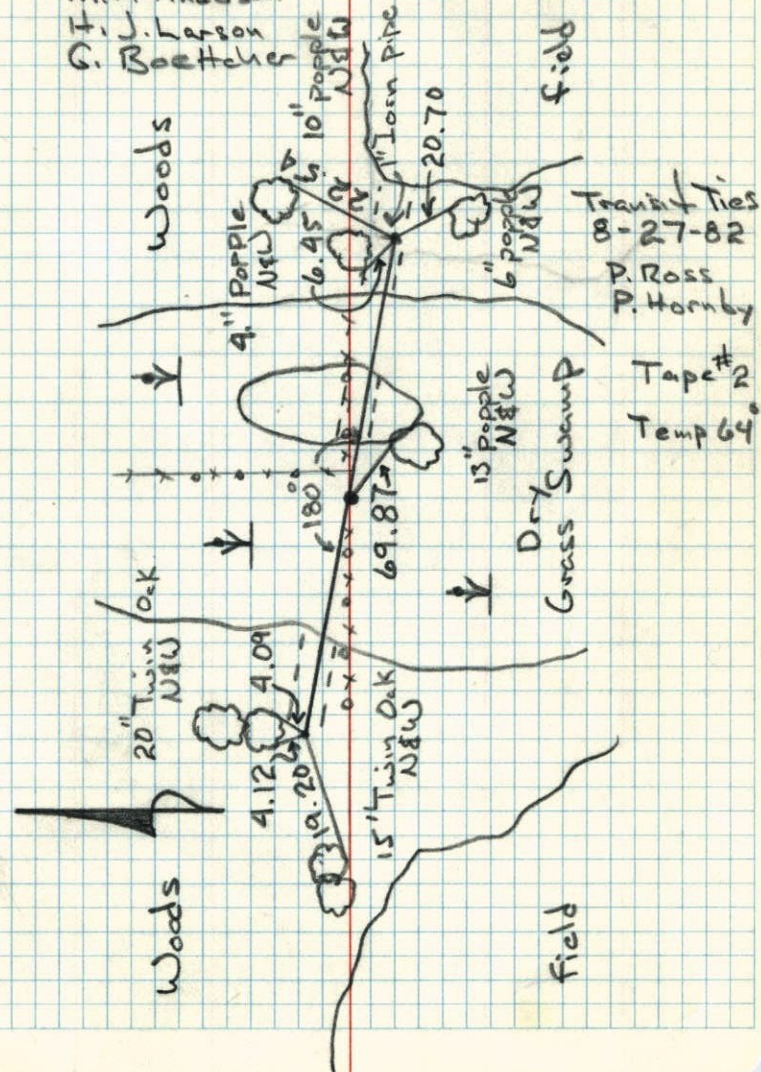 H. J. Larson
G. Boettcher
Woods
10" popple
N&W
1" Iron pipe
20.70
Field
4" Popple
N&W
6.45
6" popple
N&W
Transit Ties
8-27-82
P. Ross
P. Hornby
Tape #2
Temp 64°
13" popple
N&W
180°
69.87
Dry
Grass Swamp
20" Twin Oak
N&W
4.09
4.12
19.20
15" Twin Oak
N&W
Woods
Field